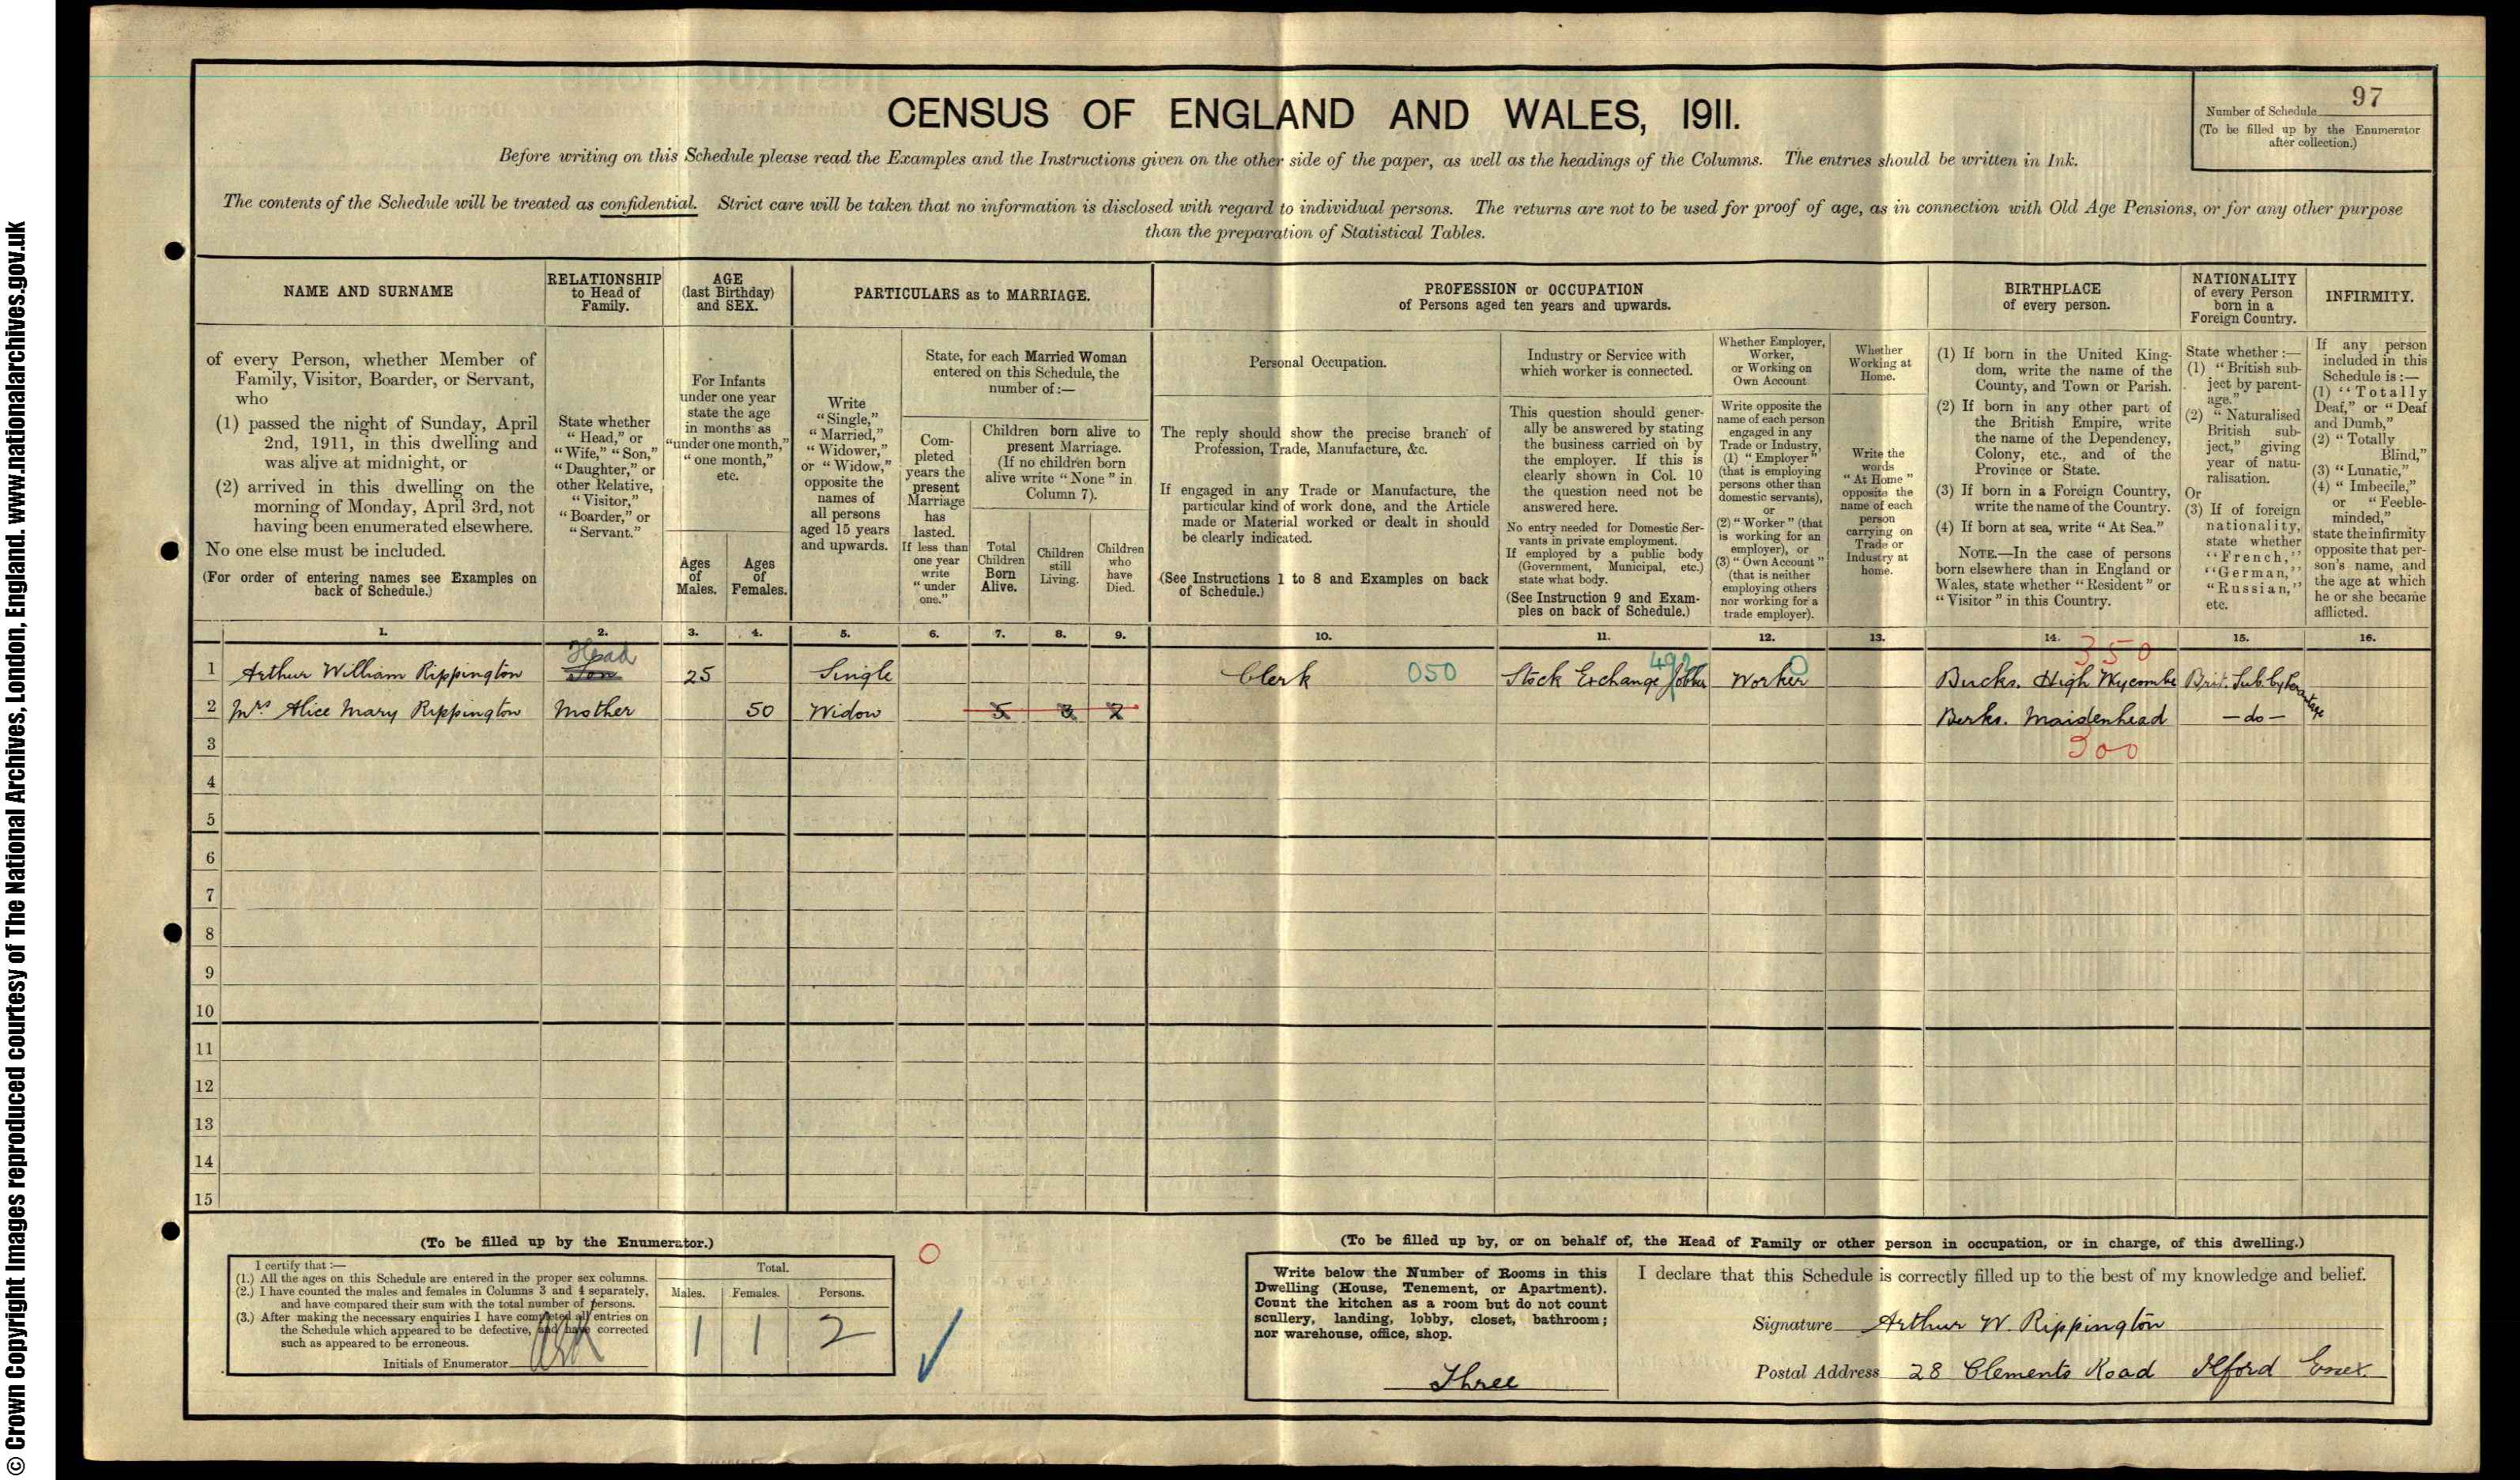 © Crown Copyright Images reproduced courtesy of The National Archives, London, England. www.nationalarchives.gov.uk
CENSUS OF ENGLAND AND WALES, 1911.
Number of Schedule 97
(To be filled up by the Enumerator
after collection.)
Before writing on this Schedule please read the Examples and the Instructions given on the other side of the paper, as well as the headings of the Columns. The entries should be written in Ink.
The contents of the Schedule will be treated as confidential. Strict care will be taken that no information is disclosed with regard to individual persons. The returns are not to be used for proof of age, as in connection with Old Age Pensions, or for any other purpose
than the preparation of Statistical Tables.
NAME AND SURNAME
of every Person, whether Member of
Family, Visitor, Boarder, or Servant,
who
(1) passed the night of Sunday, April
2nd, 1911, in this dwelling and
was alive at midnight, or
(2) arrived in this dwelling on the
morning of Monday, April 3rd, not
having been enumerated elsewhere.
No one else must be included.
(For order of entering names see Examples on
back of Schedule.)
RELATIONSHIP
to Head of
Family.
State whether
"Head," or
"Wife," "Son,"
"Daughter," or
other Relative,
"Visitor,"
"Boarder," or
"Servant."
AGE
(last Birthday)
and SEX.
For Infants
under one year
state the age
in months as
"under one month,"
"one month,"
etc.
Ages
of
Males.
Ages
of
Females.
PARTICULARS as to MARRIAGE.
Write
"Single,"
"Married,"
"Widower,"
or "Widow,"
opposite the
names of
all persons
aged 15 years
and upwards.
State, for each Married Woman
entered on this Schedule, the
number of:—
Com-
pleted
years the
present
Marriage
has
lasted.
If less than
one year
write
"under
one."
Children born alive to
present Marriage.
(If no children born
alive write "None" in
Column 7).
Total
Children
Born
Alive.
Children
still
Living.
Children
who
have
Died.
PROFESSION or OCCUPATION
of Persons aged ten years and upwards.
Personal Occupation.
The reply should show the precise branch of
Profession, Trade, Manufacture, &c.
If engaged in any Trade or Manufacture, the
particular kind of work done, and the Article
made or Material worked or dealt in should
be clearly indicated.
(See Instructions 1 to 8 and Examples on back
of Schedule.)
Industry or Service with
which worker is connected.
This question should gener-
ally be answered by stating
the business carried on by
the employer. If this is
clearly shown in Col. 10
the question need not be
answered here.
No entry needed for Domestic Ser-
vants in private employment.
If employed by a public body
(Government, Municipal, etc.)
state what body.
(See Instruction 9 and Exam-
ples on back of Schedule.)
Whether Employer,
Worker,
or Working on
Own Account
Write opposite the
name of each person
engaged in any
Trade or Industry,
(1) "Employer"
(that is employing
persons other than
domestic servants),
or
(2) "Worker" (that
is working for an
employer), or
(3) "Own Account"
(that is neither
employing others
nor working for a
trade employer).
Whether
Working at
Home.
Write the
words
"At Home"
opposite the
name of each
person
carrying on
Trade or
Industry at
home.
BIRTHPLACE
of every person.
(1) If born in the United King-
dom, write the name of the
County, and Town or Parish.
(2) If born in any other part of
the British Empire, write
the name of the Dependency,
Colony, etc., and of the
Province or State.
(3) If born in a Foreign Country,
write the name of the Country.
(4) If born at sea, write "At Sea."
NOTE.—In the case of persons
born elsewhere than in England or
Wales, state whether "Resident" or
"Visitor" in this Country.
NATIONALITY
of every Person
born in a
Foreign Country.
State whether:—
(1) "British sub-
ject by parent-
age."
(2) "Naturalised
British sub-
ject," giving
year of natu-
ralisation.
Or
(3) If of foreign
nationality,
state whether
"French,"
"German,"
"Russian,"
etc.
INFIRMITY.
If any person
included in this
Schedule is:—
(1) "Totally
Deaf," or "Deaf
and Dumb,"
(2) "Totally
Blind,"
(3) "Lunatic,"
(4) "Imbecile,"
or "Feeble-
minded,"
state the infirmity
opposite that per-
son's name, and
the age at which
he or she became
afflicted.
1. 2. 3. 4. 5. 6. 7. 8. 9. 10. 11. 12. 13. 14. 15. 16.
Head 492 350
1 Arthur William Rippington Son 25 Single Clerk 050 Stock Exchange Jobber Worker Bucks. High Wycombe Brit. Sub. by Parentage
2 Mrs Alice Mary Rippington Mother 50 Widow 5 3 2 Berks. Maidenhead —do—
3 300
4
5
6
7
8
9
10
11
12
13
14
15
(To be filled up by the Enumerator.)
I certify that:—
(1.) All the ages on this Schedule are entered in the proper sex columns.
(2.) I have counted the males and females in Columns 3 and 4 separately,
and have compared their sum with the total number of persons.
(3.) After making the necessary enquiries I have completed all entries on
the Schedule which appeared to be defective, and have corrected
such as appeared to be erroneous.
Initials of Enumerator
Total.
Males. Females. Persons.
1 1 2
(To be filled up by, or on behalf of, the Head of Family or other person in occupation, or in charge, of this dwelling.)
Write below the Number of Rooms in this
Dwelling (House, Tenement, or Apartment).
Count the kitchen as a room but do not count
scullery, landing, lobby, closet, bathroom;
nor warehouse, office, shop.
Three
I declare that this Schedule is correctly filled up to the best of my knowledge and belief.
Signature Arthur W. Rippington
Postal Address 28 Clements Road Ilford Essex.